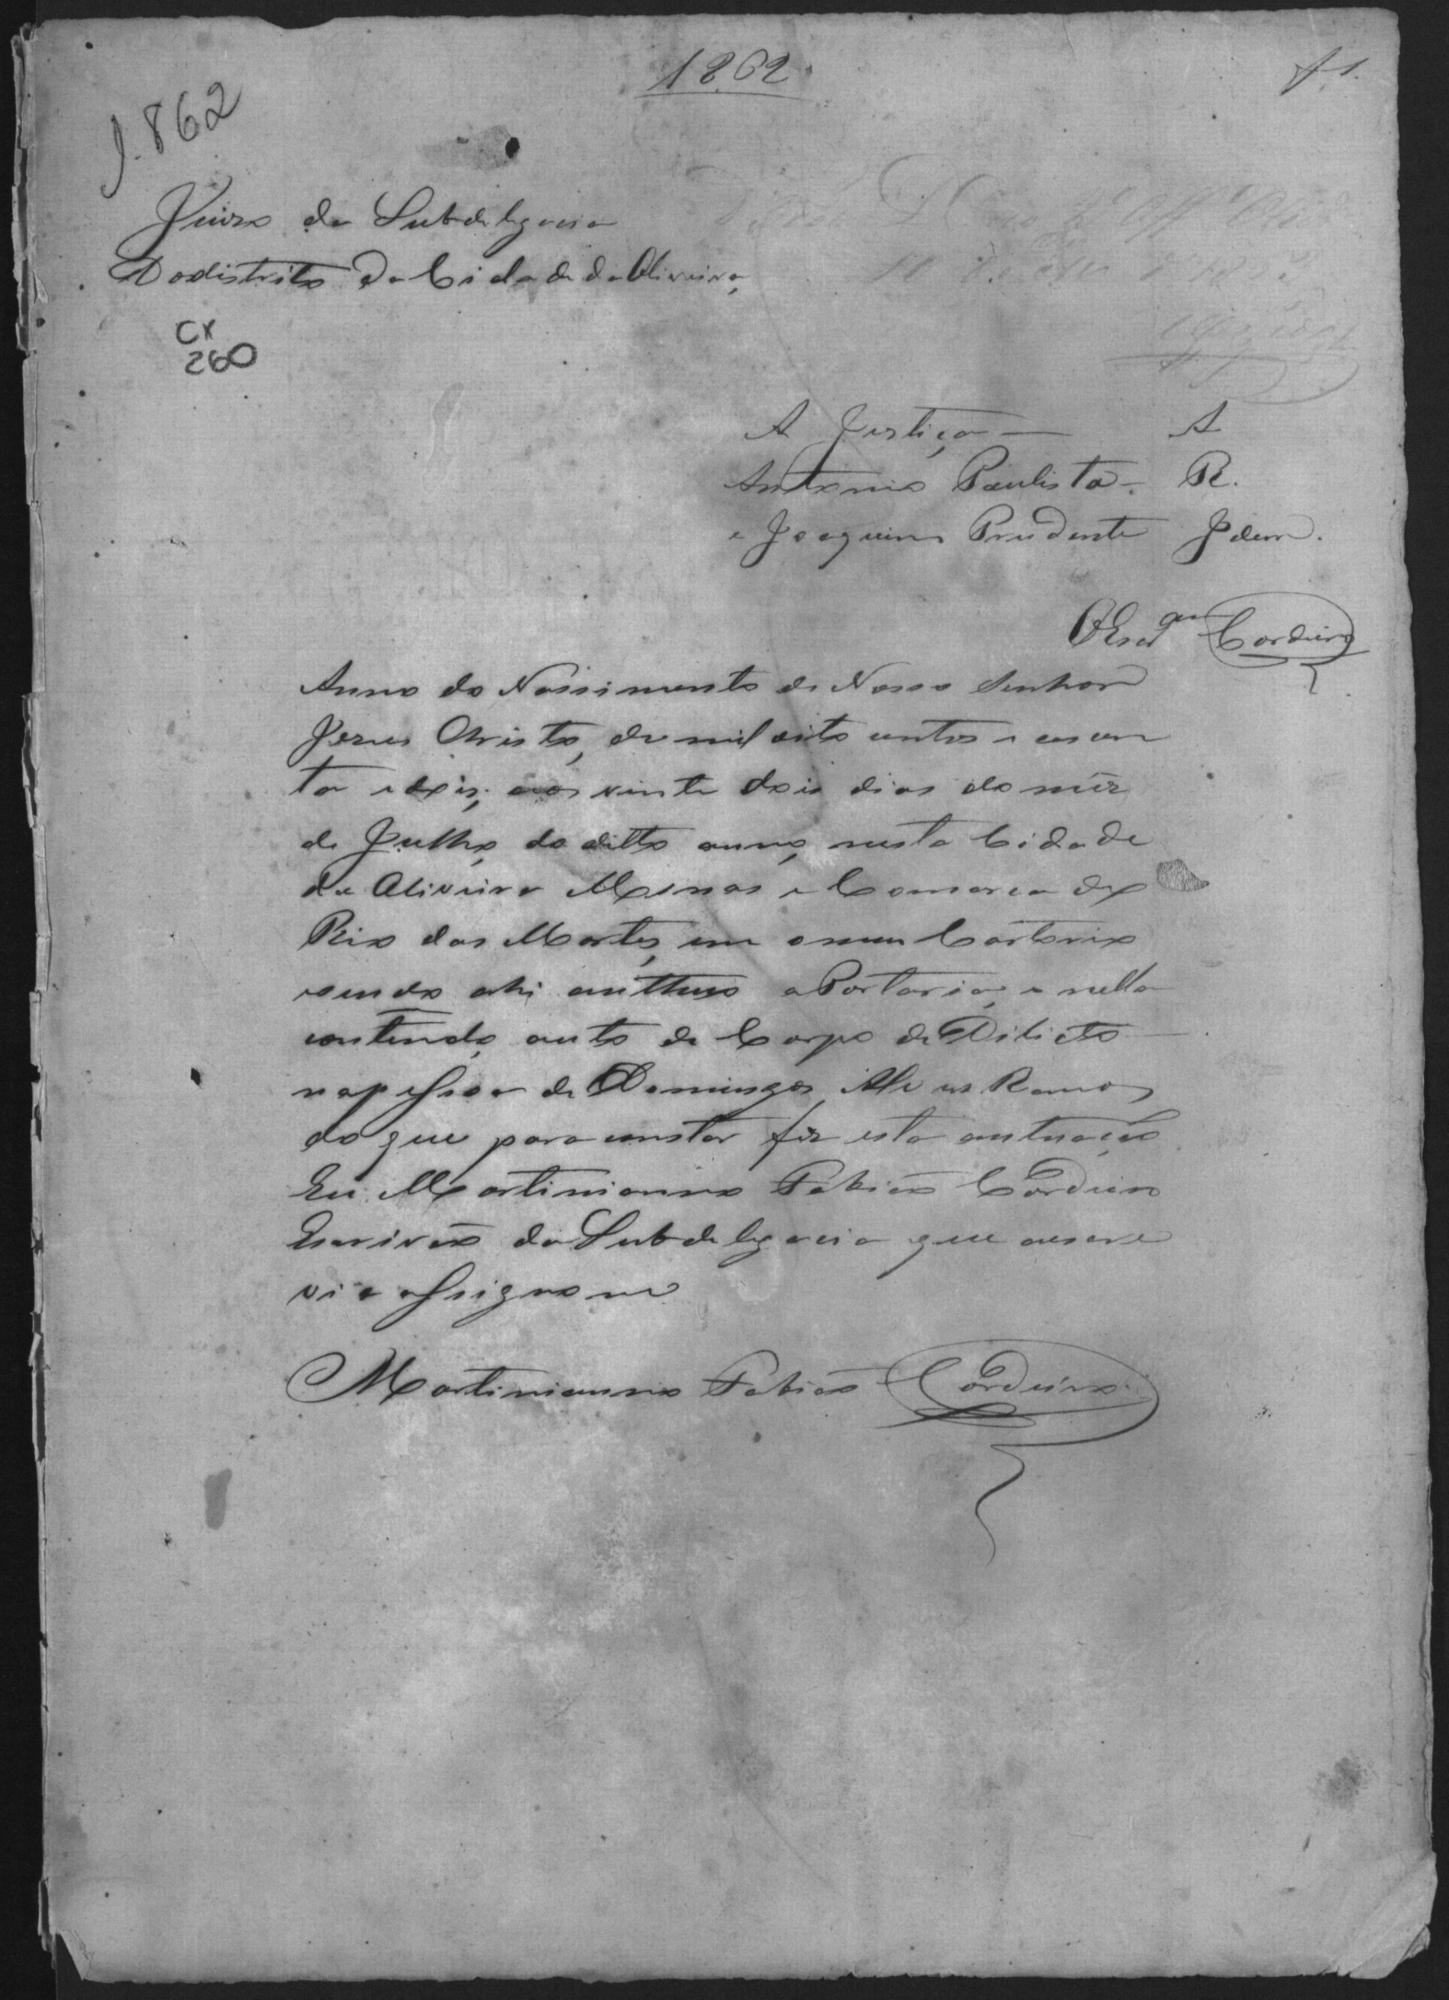 1862
f 1.
1.862
Juizo da Subdelegacia
Do districto da Cidade da Oliveira,
CX
260
A Justiça — A
Antonio Paulista — R.
e Joaquim Prudente Idem.
O Escr.am Cordeiro
Anno do Nassimento de Nosso Senhor
Jezus Christo, de mil oito centos e cesen
ta e dois, aos vinte dois dias do mez
de Julho, do ditto anno, nesta Cidade
da Oliveira Minas e Comarca do
Rio das Mortes, em o meu Cartorio
sendo ahi authuo a Portaria, e nella
contendo, auto de Corpo de Dilicto
na pessoa de Domingos Alves Ramos
do que para constar fiz esta autuação
Eu Martinianno Fabião Cordeiro
Escrivão da Subdelegacia que escre
vi e assigno me
Martinianno Fabião Cordeiro